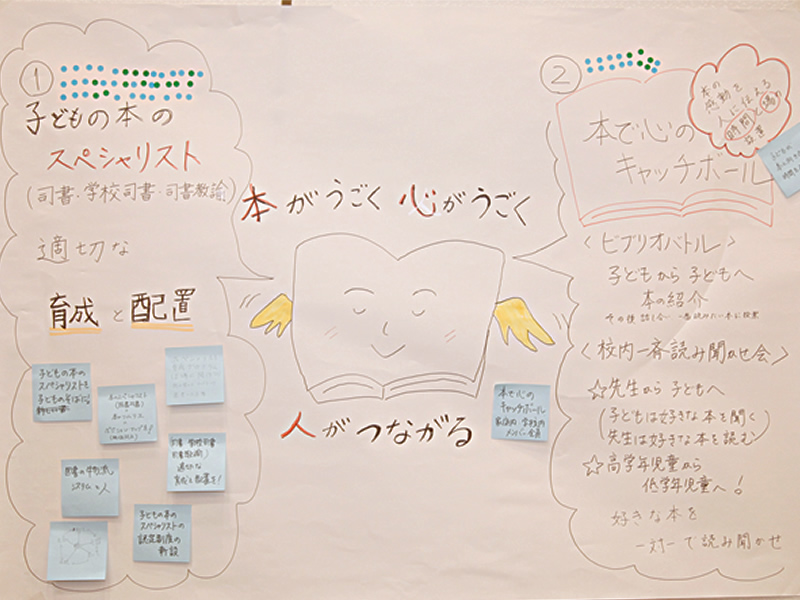 1
子どもの本の
スペシャリスト
(司書・学校司書・司書教諭)
適切な
育成と配置
子どもの本の
スペシャリストを
子どものそばに
司書・学校司書
司書教諭
適切な
育成と配置を!
図書の物流
システムと人
子どもの本の
スペシャリストの
認定制度の
新設
本がうごく 心がうごく
人がつながる
本で心の
キャッチボール
家庭内 学校内
メンバー全員
2
本で心の
キャッチボール
本の
感動を
人に伝える
時間と場の
設置
子どもの
<ビブリオバトル>
子どもから子どもへ
本の紹介
その後話し合い 一番読みたい本に投票
<校内一斉読み聞かせ会>
☆先生から子どもへ
(子どもは好きな本を聞く
先生は好きな本を読む)
☆高学年児童から
低学年児童へ!
好きな本を
一対一で読み聞かせ